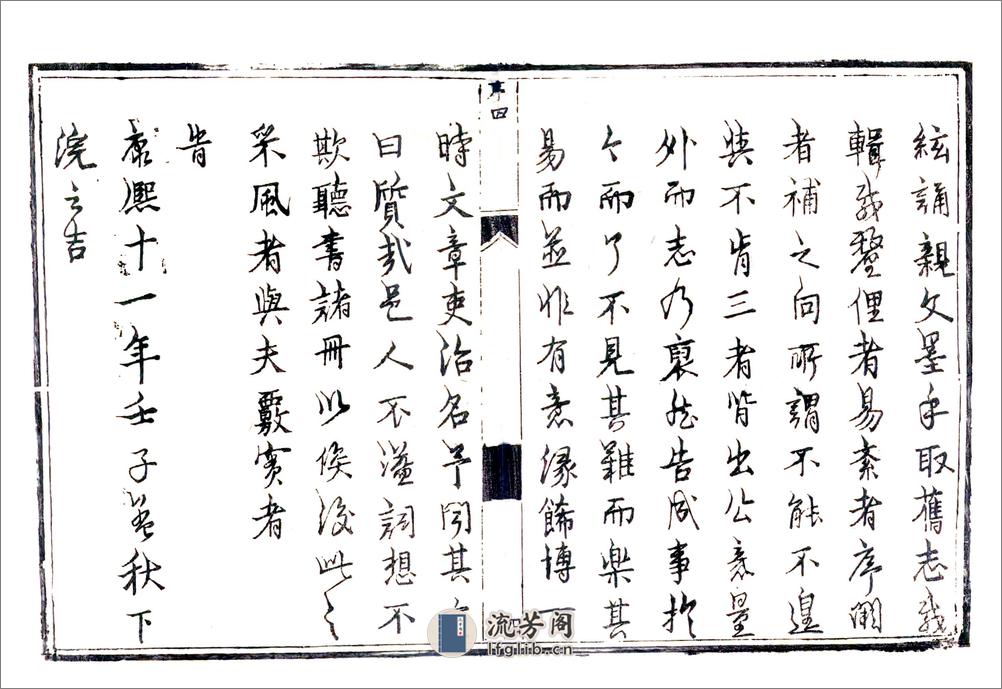 絃誦親文墨手取舊志裁
輯裁整俚者易紊者序闕
者補之向所謂不能不遑
與不肯三者皆出公意量
外而志乃裒然告成事於
今而了不見其難而樂其
易而並非有意緣餙博
序四
時文章吏治名予聞其
曰質哉邑人不溢詞想不
欺聽書諸冊以俟後此之
采風者與夫覈實者
旹
康熙十一年壬子秋下
浣之吉
流芳阁
lfglib.cn